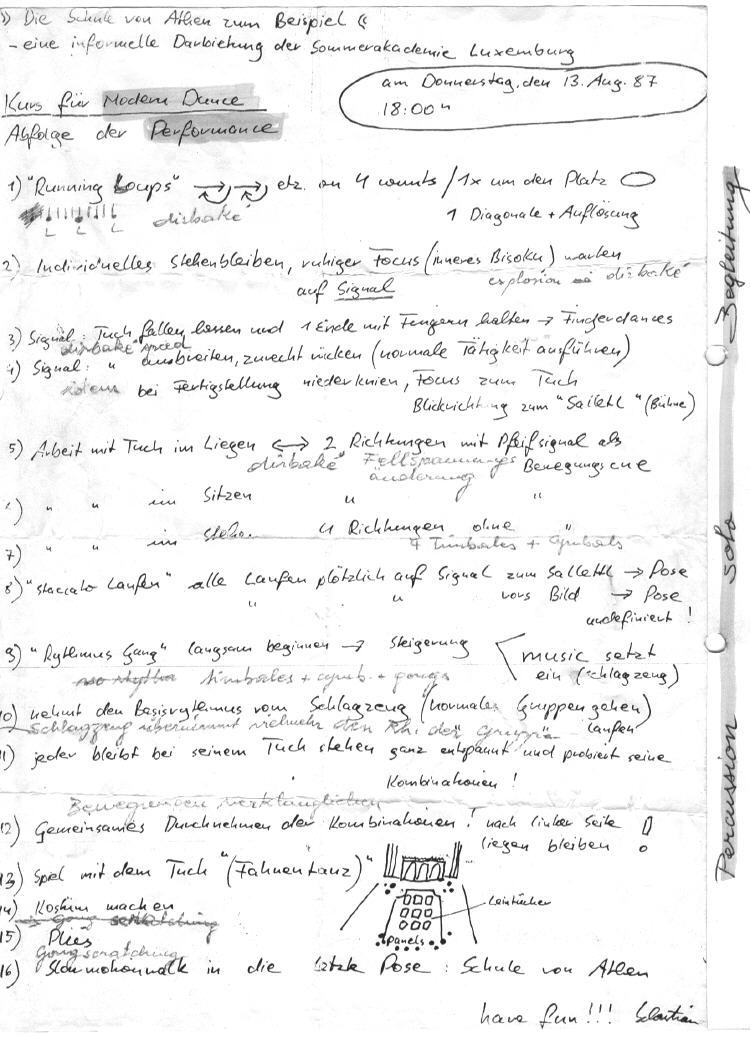 » Die Schule von Athen zum Beispiel «
- eine informelle Darbietung der Sommerakademie Luxemburg
am Donnerstag, den 13. Aug. 87
18:00 h
Kurs für Modern Dance
Abfolge der Performance
1) "Running Loups" etc. on 4 counts / 1x um den Platz
dirbaké
1 Diagonale + Auflösung
L L L
2) Individuelles Stehenbleiben, ruhiger Focus (inneres Bisoku) warten
auf Signal
explosion dirbaké
3) Signal: Tuch fallen lassen und 1 Ende mit Fingern halten → Fingerdances
dirbaké
4) Signal: " ausbreiten, zurecht rücken (normale Tätigkeit ausführen)
bei Fertigstellung niederknien, Focus zum Tuch
Blickrichtung zum "Sailettl" (Bühne)
5) Arbeit mit Tuch im Liegen ↔ 2 Richtungen mit Pfeifsignal als
dirbaké Fellspannungs Bewegungscue
änderung
" " im Sitzen " "
7) " " im Stehen 4 Richtungen ohne "
4 Timbales + Cymbals
8) "Staccato Laufen" alle Laufen plötzlich auf Signal zum Sallettl → Pose
" " vors Bild → Pose
undefiniert !
9) "Rythmus Gang" langsam beginnen → Steigerung
music setzt
ein (Schlagzeug)
timbales + cymb. + gongs
10) nehmt den Basisrythmus vom Schlagzeug (normales Gruppengehen)
laufen
Schlagzeug übernimmt vielmehr den Rhi der "Gruppe"
11) jeder bleibt bei seinem Tuch stehen ganz entspannt und probiert seine
Kombinationen !
Bewegungen verklanglichen
12) Gemeinsames Durchnehmen der Kombinationen ! nach linker Seite
liegen bleiben !
13) Spiel mit dem Tuch "(Fahnentanz)"
14) Kostüm machen
gong scratching
Leintücher
15) Pliés
panels
Gongscratching
16) Slowmotionwalk in die letzte Pose : Schule von Athen
have fun !!! Sebastian
Percussion Solo Begleitung